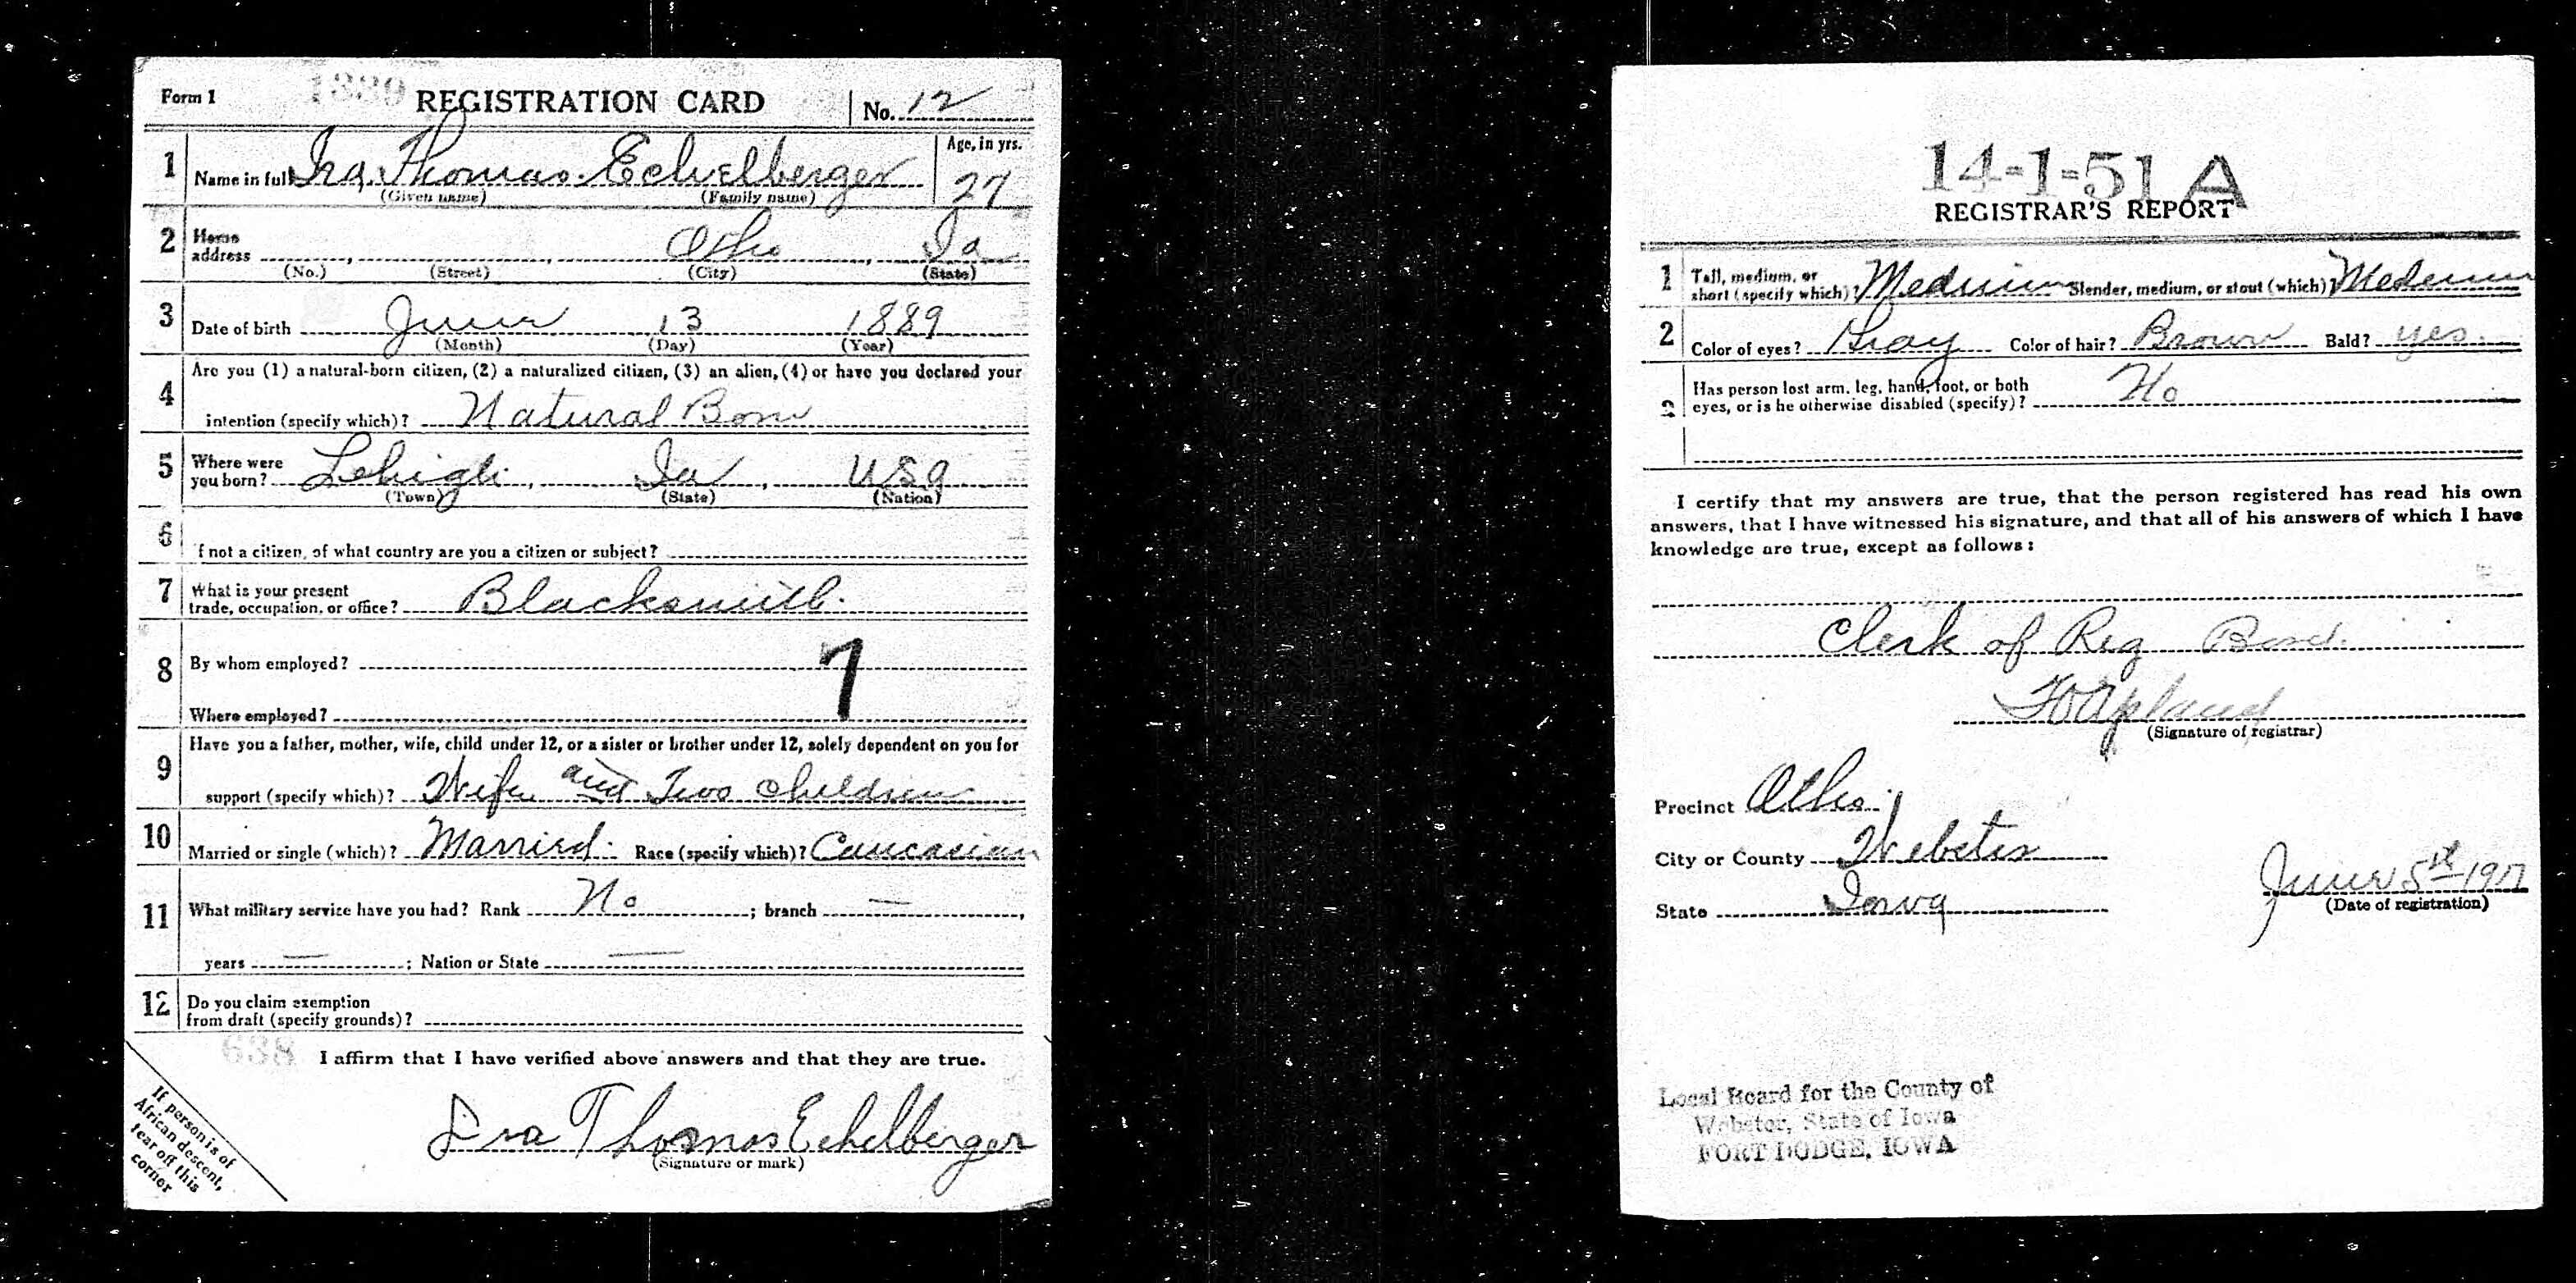 Form 1 1339 REGISTRATION CARD No. 12
1 Name in full Ira Thomas Echelberger Age, in yrs. 27
(Given name) (Family name)
2 Home address Otho, Ia
(No.) (Street) (City) (State)
3 Date of birth June 13 1889
(Month) (Day) (Year)
4 Are you (1) a natural-born citizen, (2) a naturalized citizen, (3) an alien, (4) or have you declared your
intention (specify which)? Natural Born
5 Where were you born? Lehigh, Ia, USA
(Town) (State) (Nation)
6 If not a citizen, of what country are you a citizen or subject?
7 What is your present trade, occupation, or office? Blacksmith.
8 By whom employed?
7
Where employed?
9 Have you a father, mother, wife, child under 12, or a sister or brother under 12, solely dependent on you for
support (specify which)? Wife and Two children
10 Married or single (which)? Married. Race (specify which)? Caucasian
11 What military service have you had? Rank No; branch —,
years —; Nation or State —
12 Do you claim exemption
from draft (specify grounds)?
638 I affirm that I have verified above answers and that they are true.
Ira Thomas Echelberger
(Signature or mark)
If person is of
African descent,
tear off this
corner
14-1-51 A
REGISTRAR'S REPORT
1 Tall, medium, or short (specify which)? Medium Slender, medium, or stout (which)? Medium
2 Color of eyes? Gray Color of hair? Brown Bald? yes.
3 Has person lost arm, leg, hand, foot, or both
eyes, or is he otherwise disabled (specify)? No
I certify that my answers are true, that the person registered has read his own
answers, that I have witnessed his signature, and that all of his answers of which I have
knowledge are true, except as follows:
Clerk of Reg Bord.
(Signature of registrar)
Precinct Otho.
City or County Webster
State Iowa
June 5th 1917
(Date of registration)
Local Board for the County of
Webster, State of Iowa
FORT DODGE, IOWA